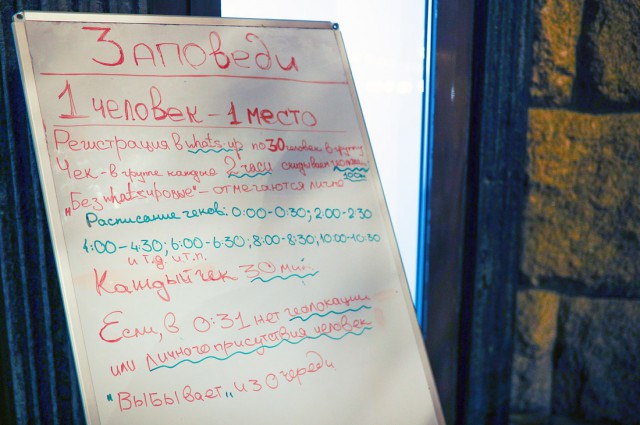 Заповеди
1 человек - 1 место
Регистрация в whats-up по 30 человек в группу
Чек - в группе каждые 2 часа скидываем геолокац
100м
"Безwhatsupовые" - отмечаются лично
Расписание чеков: 0:00-0:30; 2:00-2:30
4:00-4:30; 6:00-6:30; 8:00-8:30; 10:00-10:30
и т.д. и.т.п.
Каждый чек 30 мин.
Если, в 0:31 нет геолокации
или личного присутствия человек
"Выбывает" из очереди